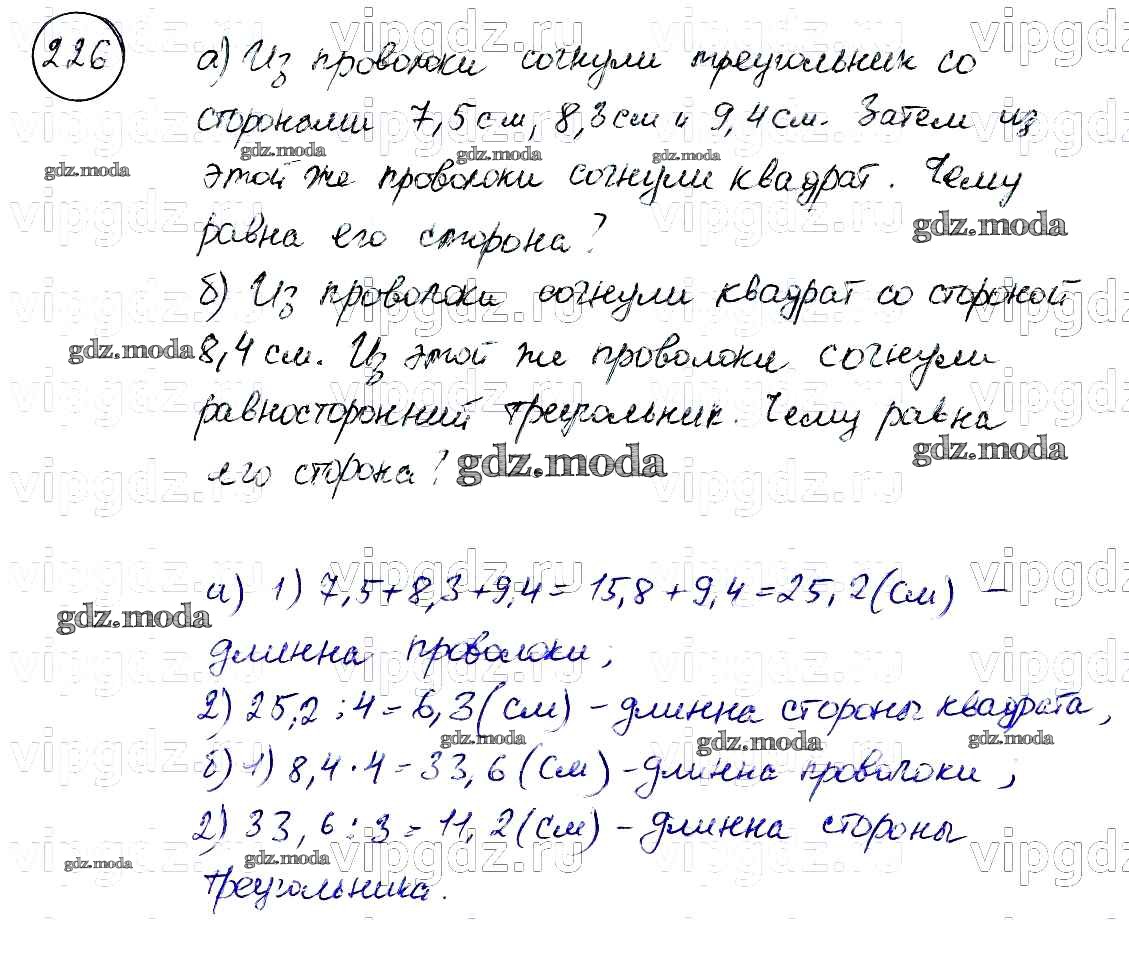 226
а) Из проволоки согнули треугольник со
сторонами 7,5 см, 8,3 см и 9,4 см. Затем из
этой же проволоки согнули квадрат. Чему
равна его сторона?
б) Из проволоки согнули квадрат со стороной
8,4 см. Из этой же проволоки согнули
равносторонний треугольник. Чему равна
его сторона?
а) 1) 7,5+8,3+9,4=15,8+9,4=25,2(см) –
длинна проволоки;
2) 25,2:4=6,3(см) – длинна стороны квадрата,
б) 1) 8,4·4=33,6(см) – длинна проволоки;
2) 33,6:3=11,2(см) – длинна стороны
треугольника.
gdz.moda
vipgdz.ru